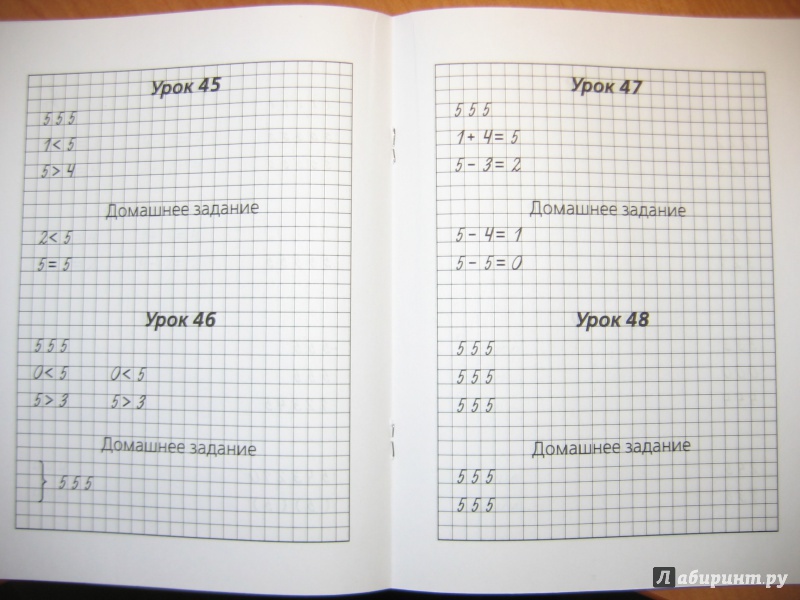 Урок 45
5 5 5
1 < 5
5 > 4
Домашнее задание
2 < 5
5 = 5
Урок 46
5 5 5
0 < 5 0 < 5
5 > 3 5 > 3
Домашнее задание
} 5 5 5
Урок 47
5 5 5
1 + 4 = 5
5 - 3 = 2
Домашнее задание
5 - 4 = 1
5 - 5 = 0
Урок 48
5 5 5
5 5 5
5 5 5
Домашнее задание
5 5 5
5 5 5
Лабиринт.ру